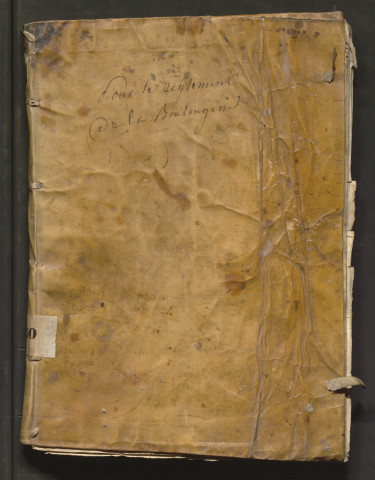 Pour le Reglement
de la Boulengerie
0